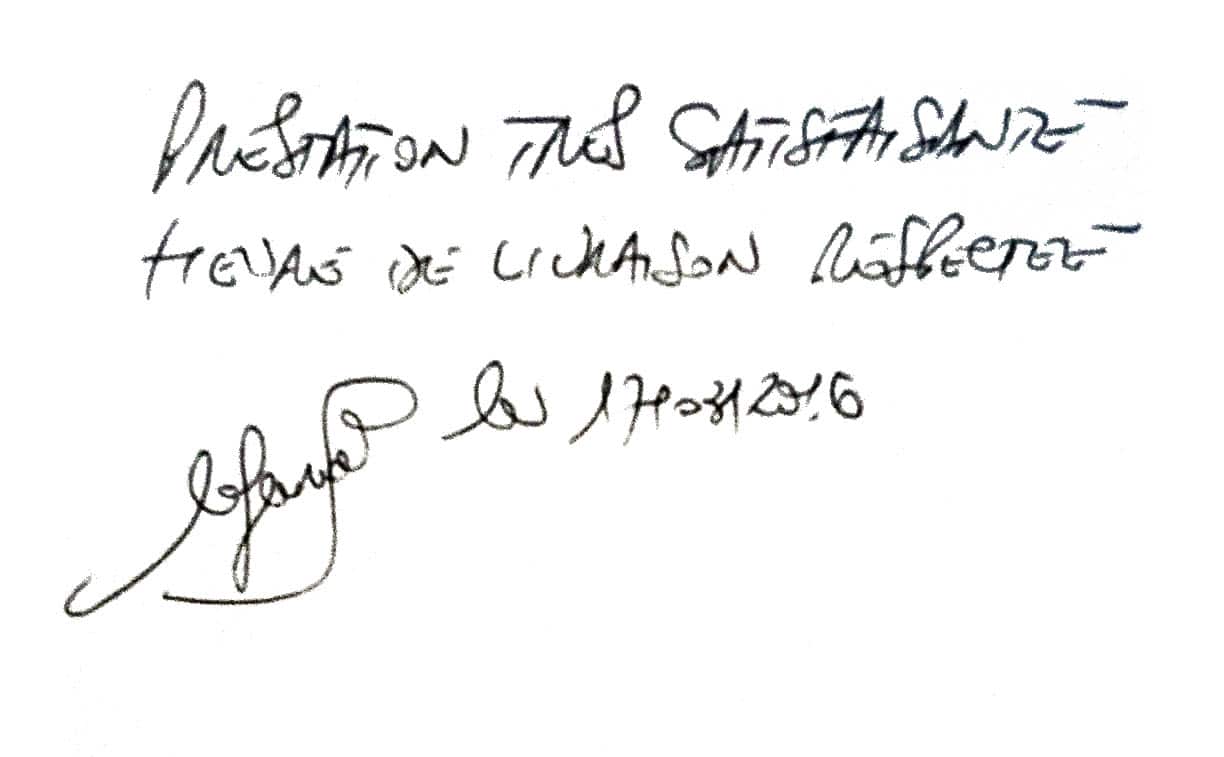 PRESTATION TRES SATISFAISANTE
HEURE DE LIVRAISON RESPECTEE
le 17/03/2016